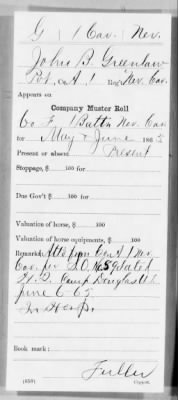 G | 1 Cav. | Nev.
John B. Greenlaw
Pvt., Co. A. 1 Reg't Nev. Cav.
Appears on
Company Muster Roll
Co F, 1 Batt'n Nev. Cav
for May & June 1865
Present or absent Present
Stoppage, $ 100 for
Due Gov't $ 100 for
Valuation of horse, $ 100
Valuation of horse equipments, $ 100
Remarks: from Co A 1 Nev
Cav. per S.O. No 59 dated
H.Q. Camp Douglas U.T.
June 6 65
In Hosp.
Book mark:
Fuller
(859) Copyist.